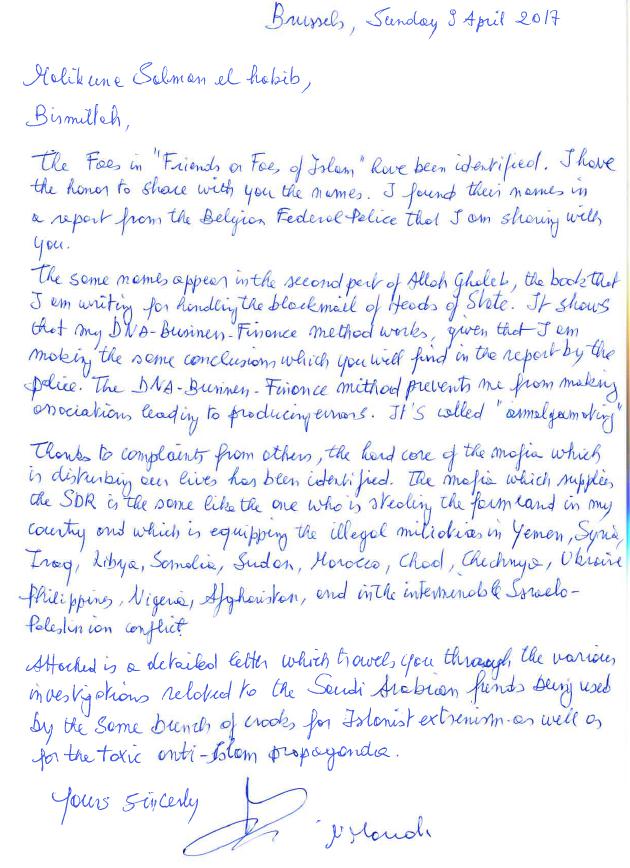 Brussels, Sunday 9 April 2017
Malikune Salman el habib,
Bismillah,
The Foes in "Friends or Foes of Islam" have been identified. I have
the honor to share with you the names. I found their names in
a report from the Belgian Federal Police that I am sharing with
you.
The same names appear in the second part of Allah Ghaleb, the book that
I am writing for handling the blackmail of Heads of State. It shows
that my DNA-Business-Finance method works, given that I am
making the same conclusions which you will find in the report by the
police. The DNA-Business-Finance method prevents me from making
associations leading to producing errors. It's called "amalgamating"
Thanks to complaints from others, the hard core of the mafia which
is disturbing our lives has been identified. The mafia which supplies
the SDR is the same like the one who is stealing the farmland in my
country and which is equipping the illegal militias in Yemen, Syria,
Iraq, Libya, Somalia, Sudan, Morocco, Chad, Chechnya, Ukraine
Philippines, Nigeria, Afghanistan, and in the interminable Israelo-
Palestinian conflict.
Attached is a detailed letter which travels you through the various
investigations related to the Saudi Arabian funds being used
by the same bunch of crooks for Islamist extremism as well as
for the toxic anti-Islam propaganda.
Yours Sincerly